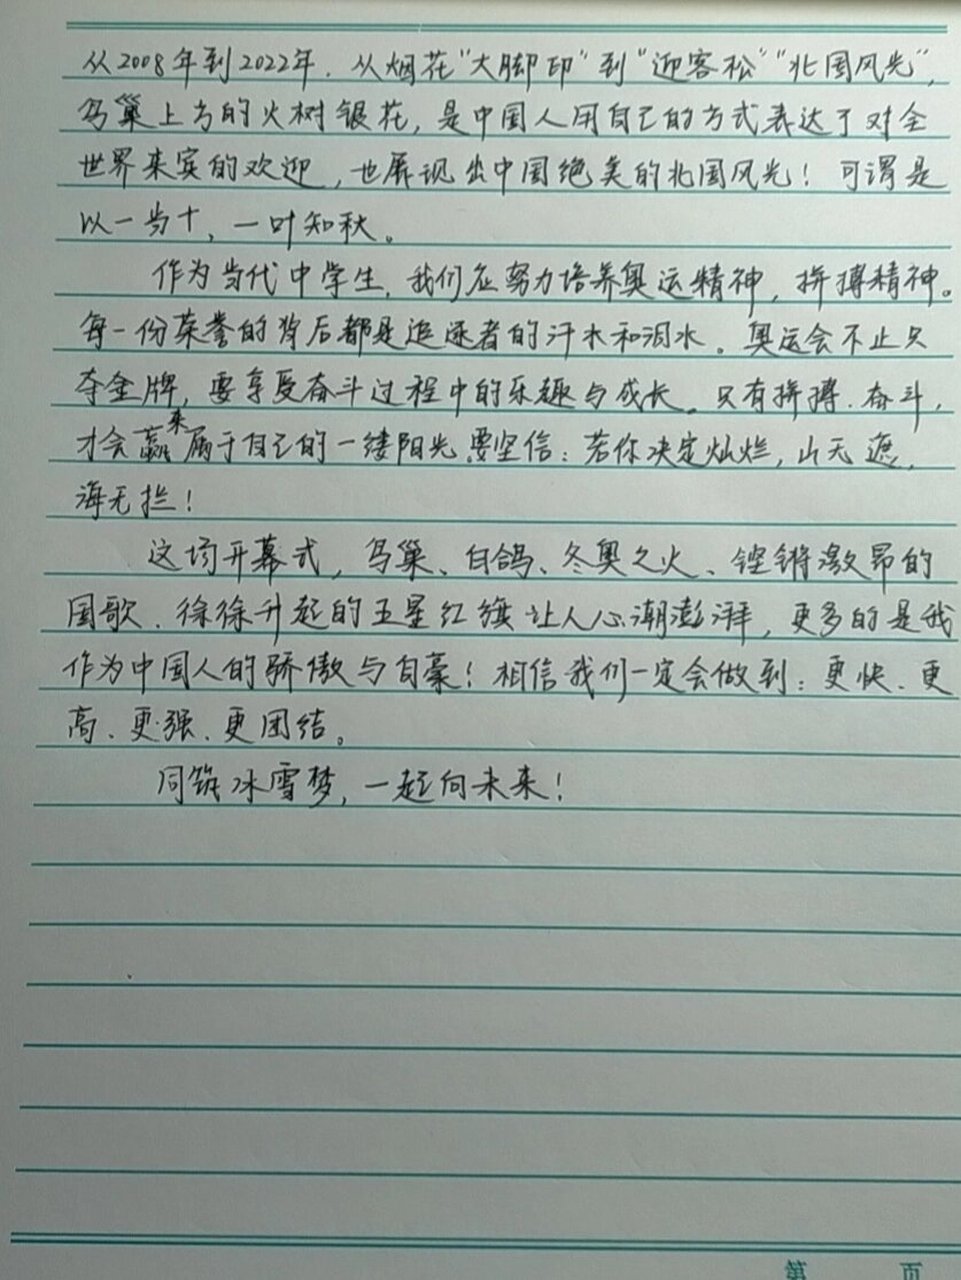 从2008年到2022年，从烟花“大脚印”到“迎客松”“北国风光”，
鸟巢上方的火树银花，是中国人用自己的方式表达了对全
世界来宾的欢迎，也展现出中国绝美的北国风光！可谓是
以一当十、一叶知秋。
作为当代中学生，我们应努力培养奥运精神，拼搏精神。
每一份荣誉的背后都是追逐者的汗水和泪水。奥运会不止只
夺金牌，要享受奋斗过程中的乐趣与成长。只有拼搏、奋斗，
才会赢来属于自己的一缕阳光，要坚信：若你决定灿烂，山无遮，
海无拦！
这场开幕式，鸟巢、白鸽、冬奥之火、铿锵激昂的
国歌、徐徐升起的五星红旗让人心潮澎湃，更多的是我
作为中国人的骄傲与自豪！相信我们一定会做到：更快、更
高、更强、更团结。
同筑冰雪梦，一起向未来！
第 页